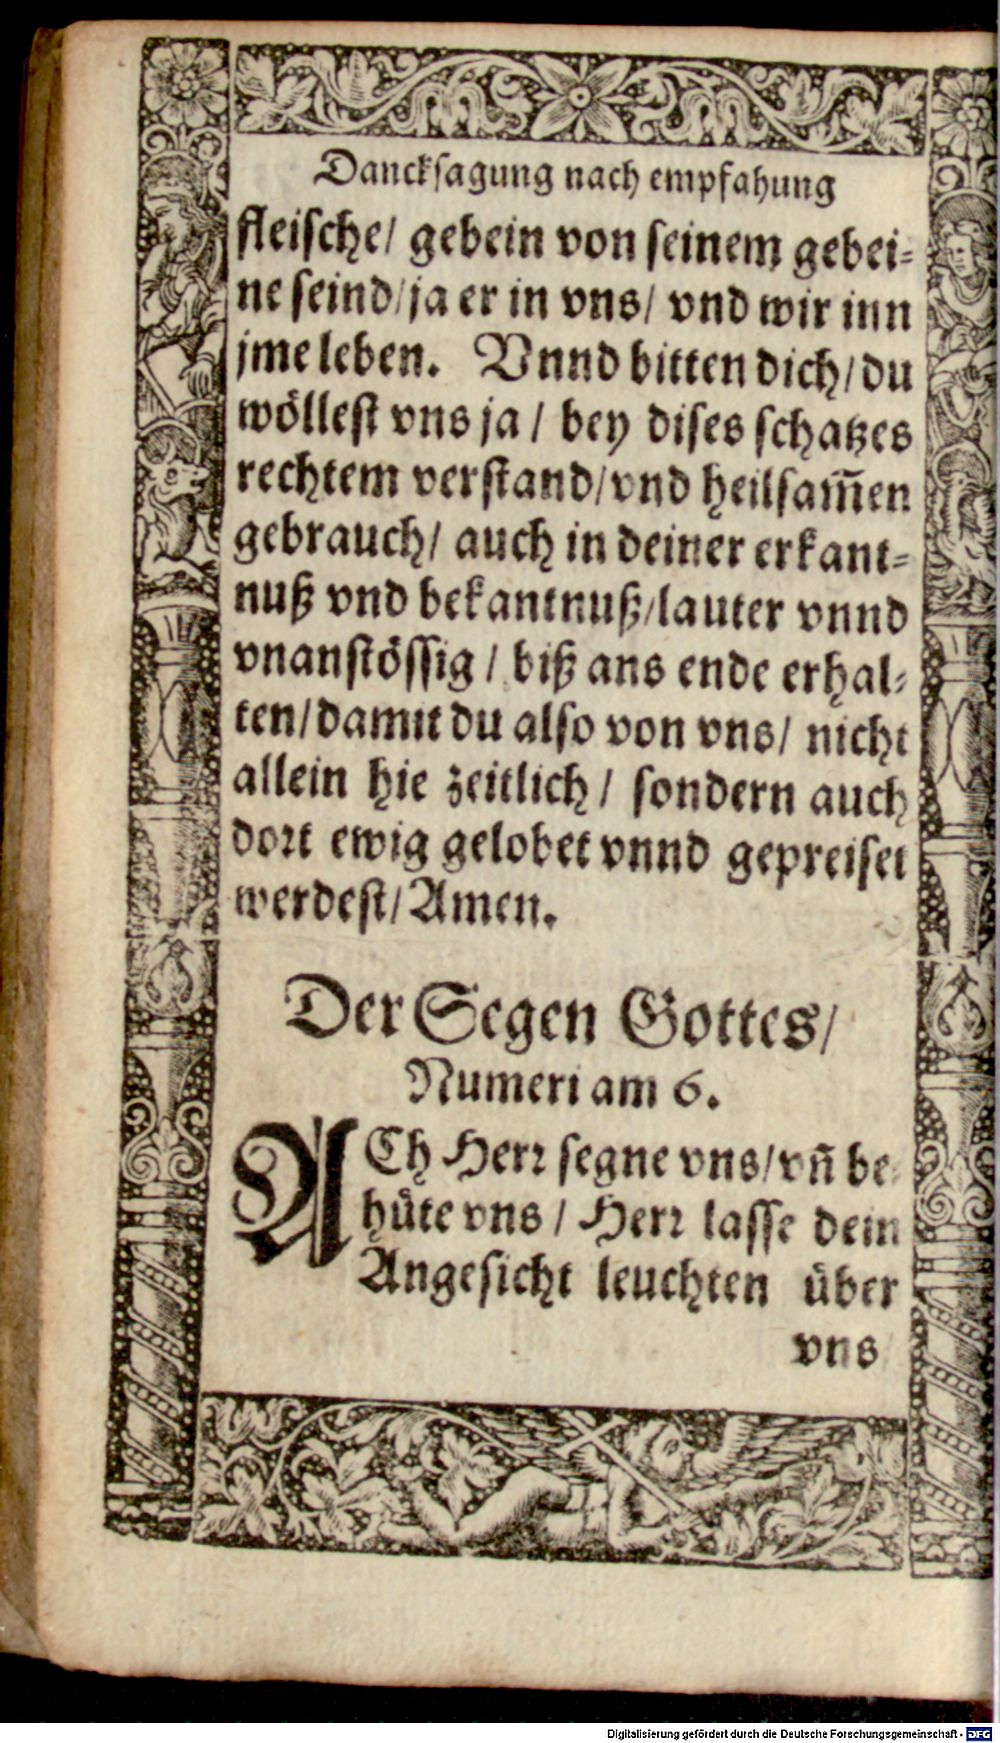 Dancksagung nach empfahung
fleische/ gebein von seinem gebei⸗
ne seind/ ja er in vns/ vnd wir inn
jme leben. Vnnd bitten dich/ du
wöllest vns ja / bey dises schatzes
rechtem verstand/ vnd heilsam̃en
gebrauch/ auch in deiner erkant⸗
nuß vnd bekantnuß/ lauter vnnd
vnanstössig / biß ans ende erhal⸗
ten/ damit du also von vns/ nicht
allein hie zeitlich / sondern auch
dort ewig gelobet vnnd gepreiset
werdest/ Amen.
Der Segen Gottes/
Numeri am 6.
ACh Herr segne vns/ vñ be⸗
hüte vns / Herr lasse dein
Angesicht leuchten über
vns
Digitalisierung gefördert durch die Deutsche Forschungsgemeinschaft - DFG